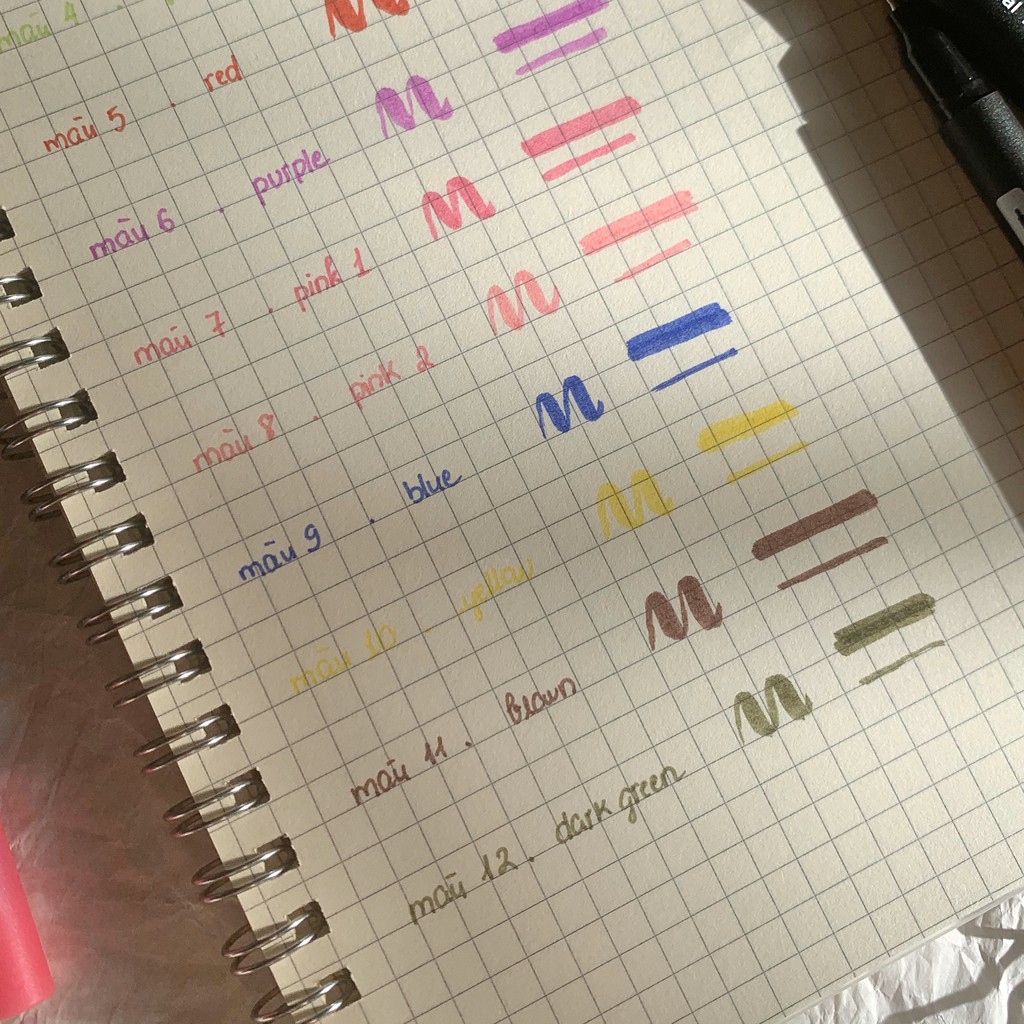 màu 4 .
màu 5 . red
màu 6 . purple
màu 7 . pink 1
màu 8 . pink 2
màu 9 . blue
màu 10 . yellow
màu 11 . brown
màu 12 . dark green